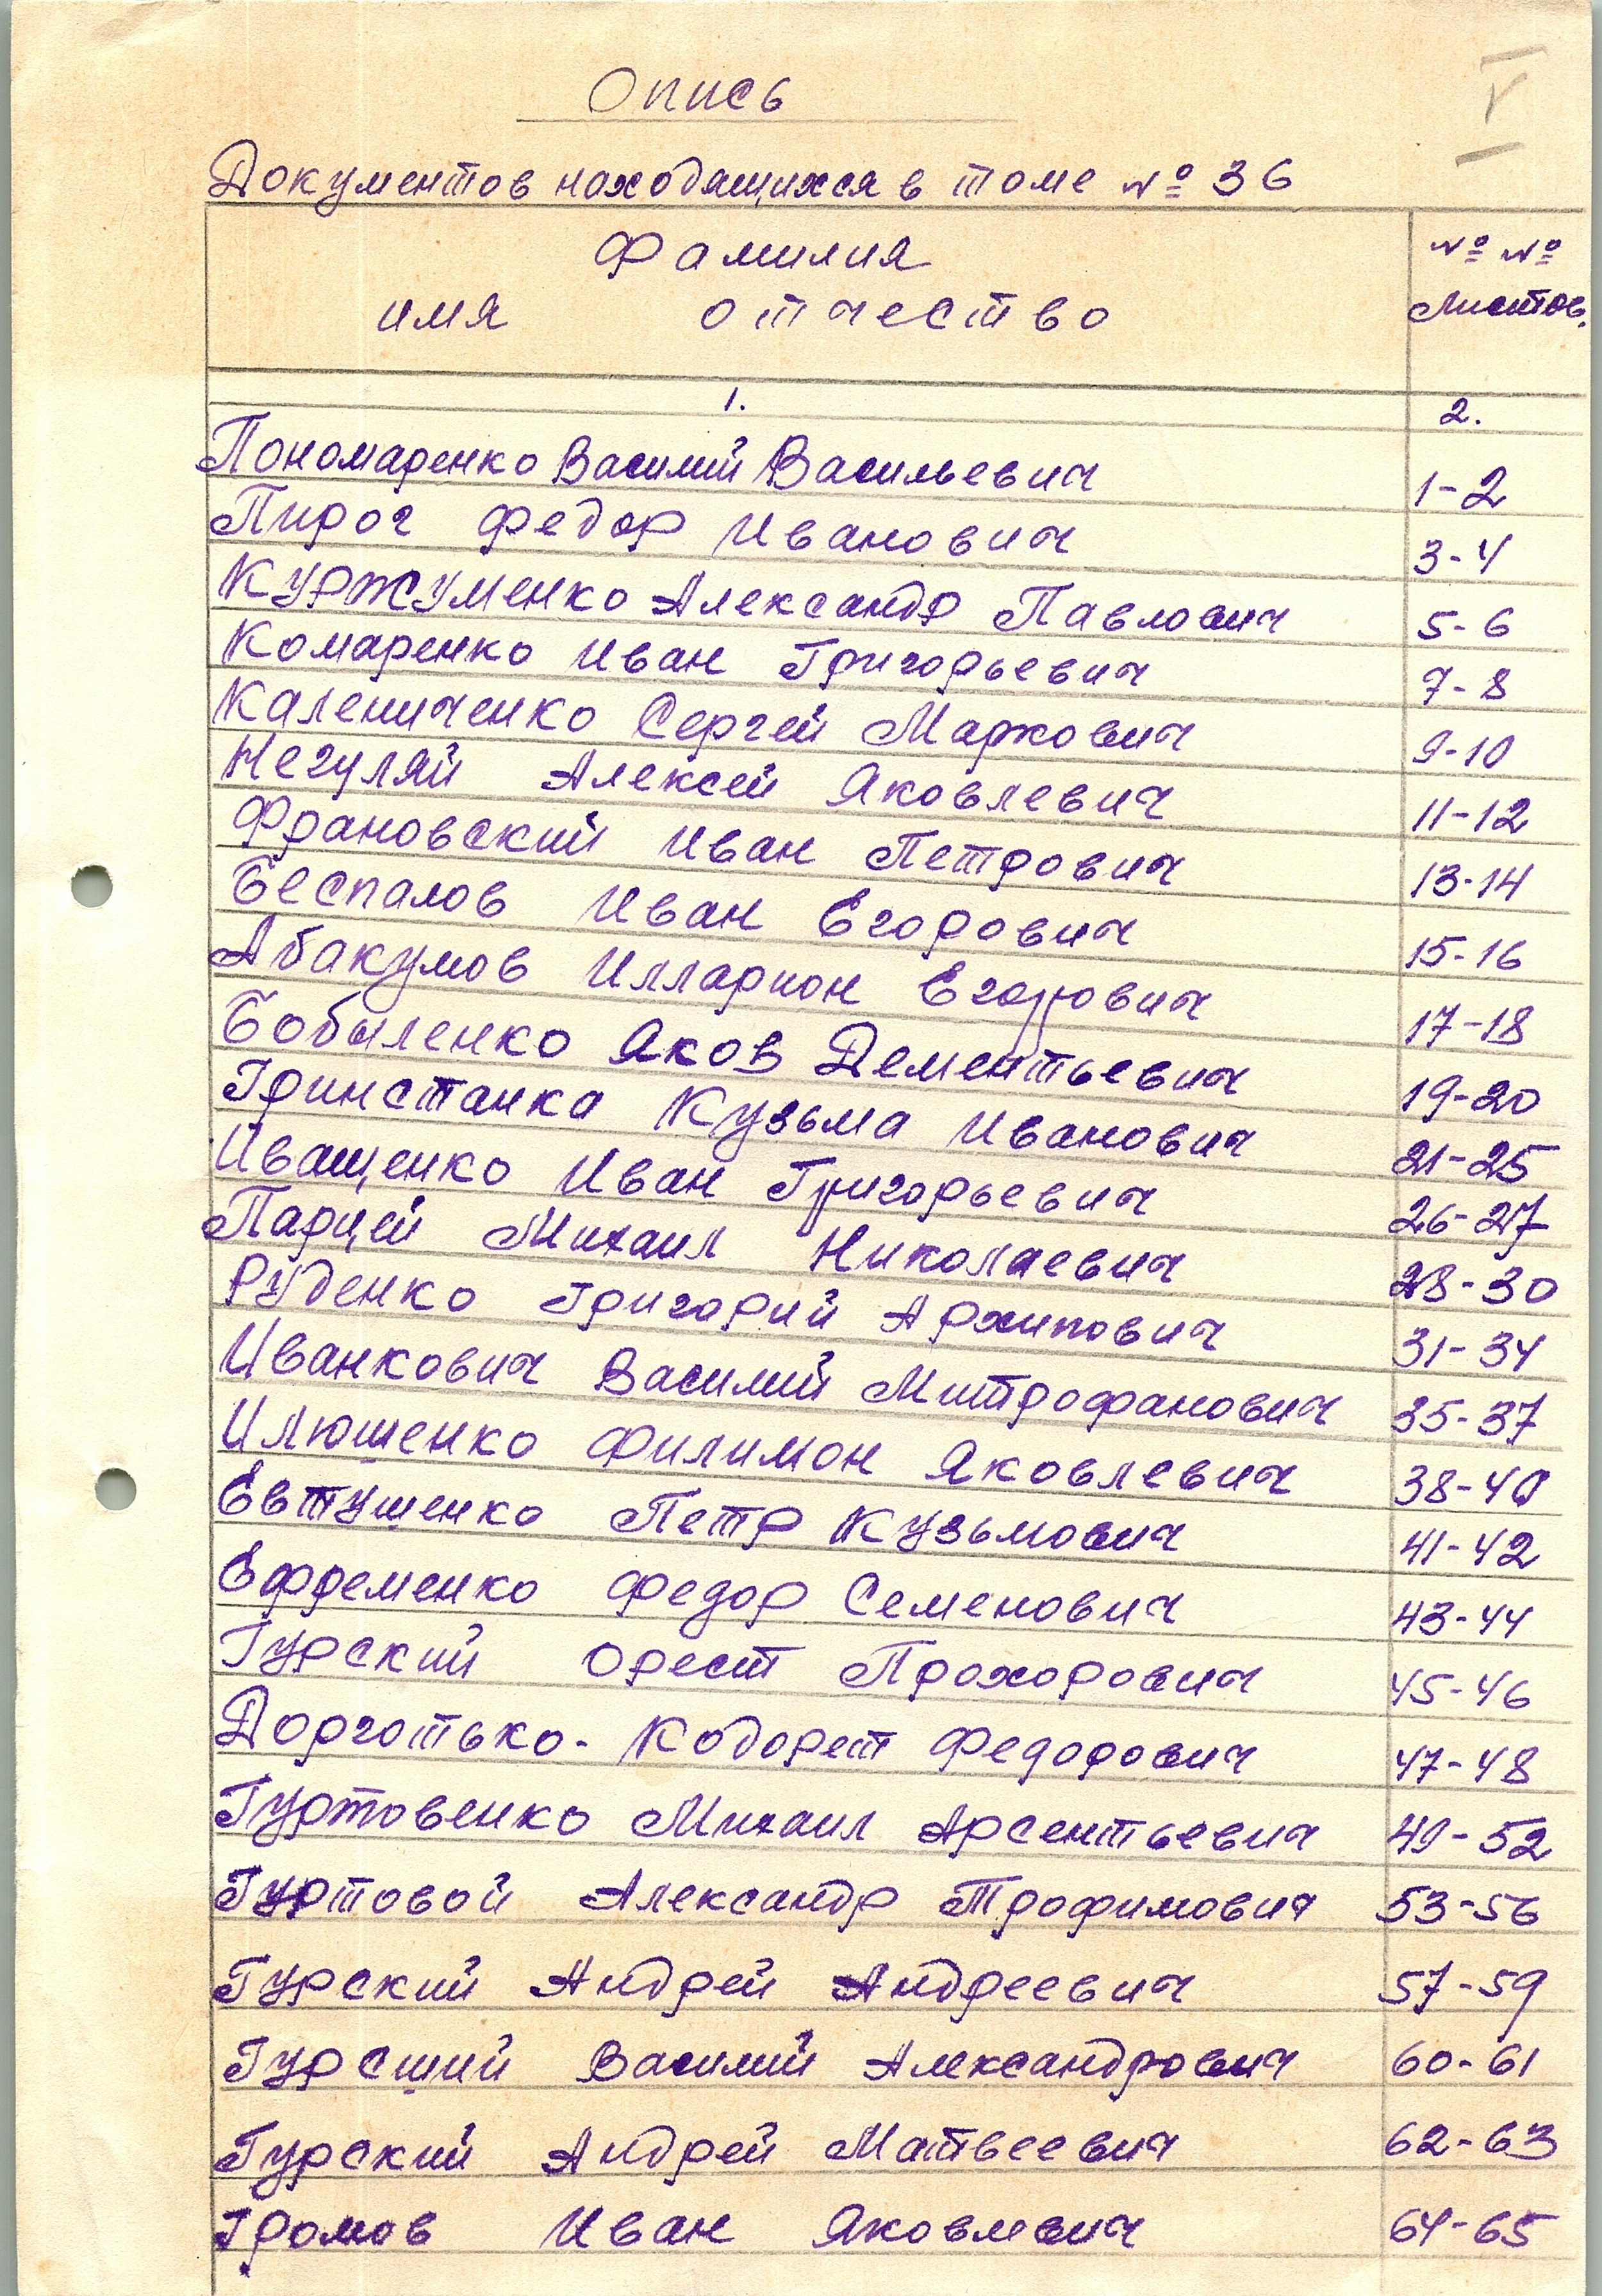 Опись
V
Документов находящихся в томе № 36
Фамилия
имя отчество
№ № листов.
1. 2.
Пономаренко Василий Васильевич 1-2
Пирог Федор Иванович 3-4
Куржуменко Александр Павлович 5-6
Комаренко Иван Григорьевич 7-8
Калениченко Сергей Маркович 9-10
Негуляй Алексей Яковлевич 11-12
Френовский Иван Петрович 13-14
Беспалов Иван Егорович 15-16
Абакумов Илларион Егорович 17-18
Бобыленко Яков Дементьевич 19-20
Гринстанка Кузьма Иванович 21-25
Иващенко Иван Григорьевич 26-27
Парцей Михаил Николаевич 28-30
Руденко Григорий Архипович 31-34
Иванкович Василий Митрофанович 35-37
Илюшенко Филимон Яковлевич 38-40
Евтушенко Петр Кузьмович 41-42
Ефременко Федор Семенович 43-44
Гурский Орест Прохорович 45-46
Дорготько-Кодорет Федорович 47-48
Гуртовенко Михаил Арсентьевич 49-52
Гуртовой Александр Трофимович 53-56
Гурский Андрей Андреевич 57-59
Гурсций Василий Александрович 60-61
Гурский Андрей Матвеевич 62-63
Громов Иван Яковлевич 64-65